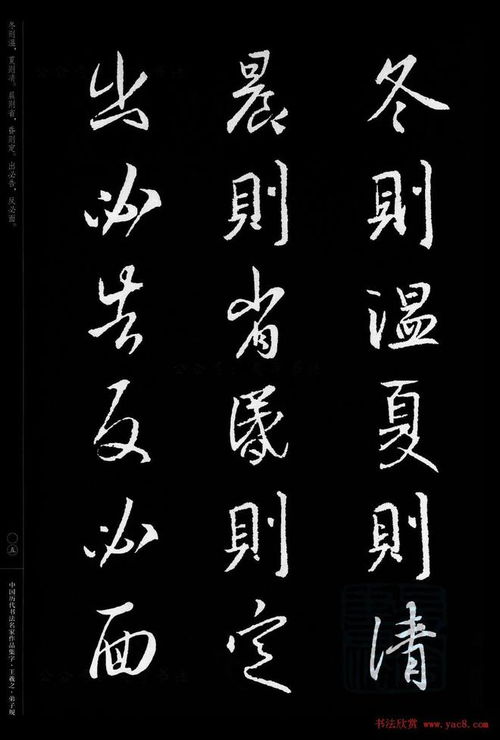 冬則温夏則清
晨則省昏則定
出必告反必面
冬则温，夏则清。晨则省，昏则定。出必告，反必面。
〇五
中国历代书法名家作品集字·王羲之·弟子规
书法欣赏 www.yac8.com